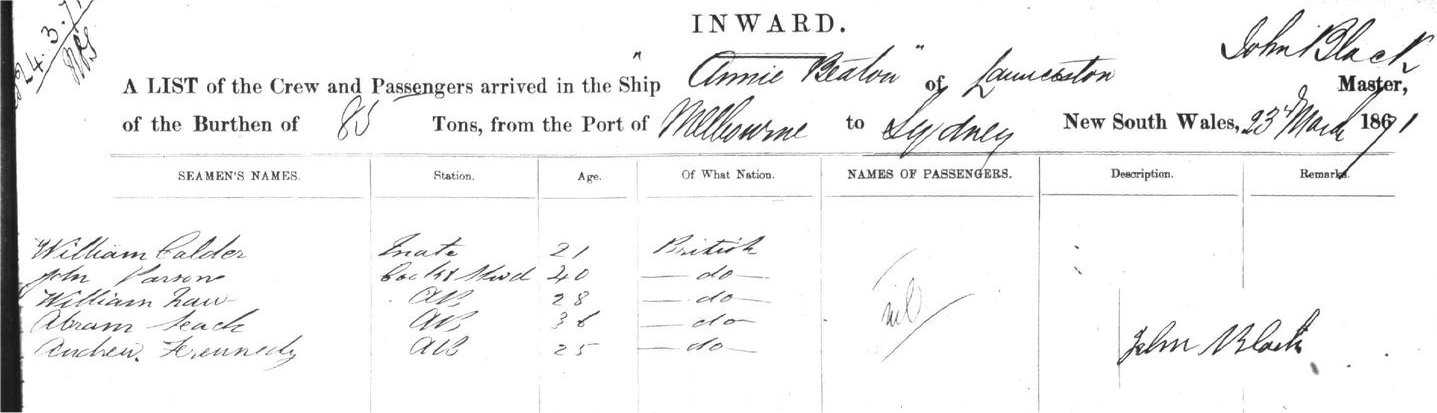 24.3.71
INWARD.
John Black
A LIST of the Crew and Passengers arrived in the Ship "Annie Beaton" of Launceston Master,
of the Burthen of 85 Tons, from the Port of Melbourne to Sydney New South Wales, 23d March 1871
SEAMEN'S NAMES. Station. Age. Of What Nation. NAMES OF PASSENGERS. Description. Remarks.
William Calder Mate 21 British
John Parson Cook & Stwd 40 — do —
William AB 28 — do —
Abram AB 36 — do —
Andrew Kennedy AB 25 — do —
nil
John Black